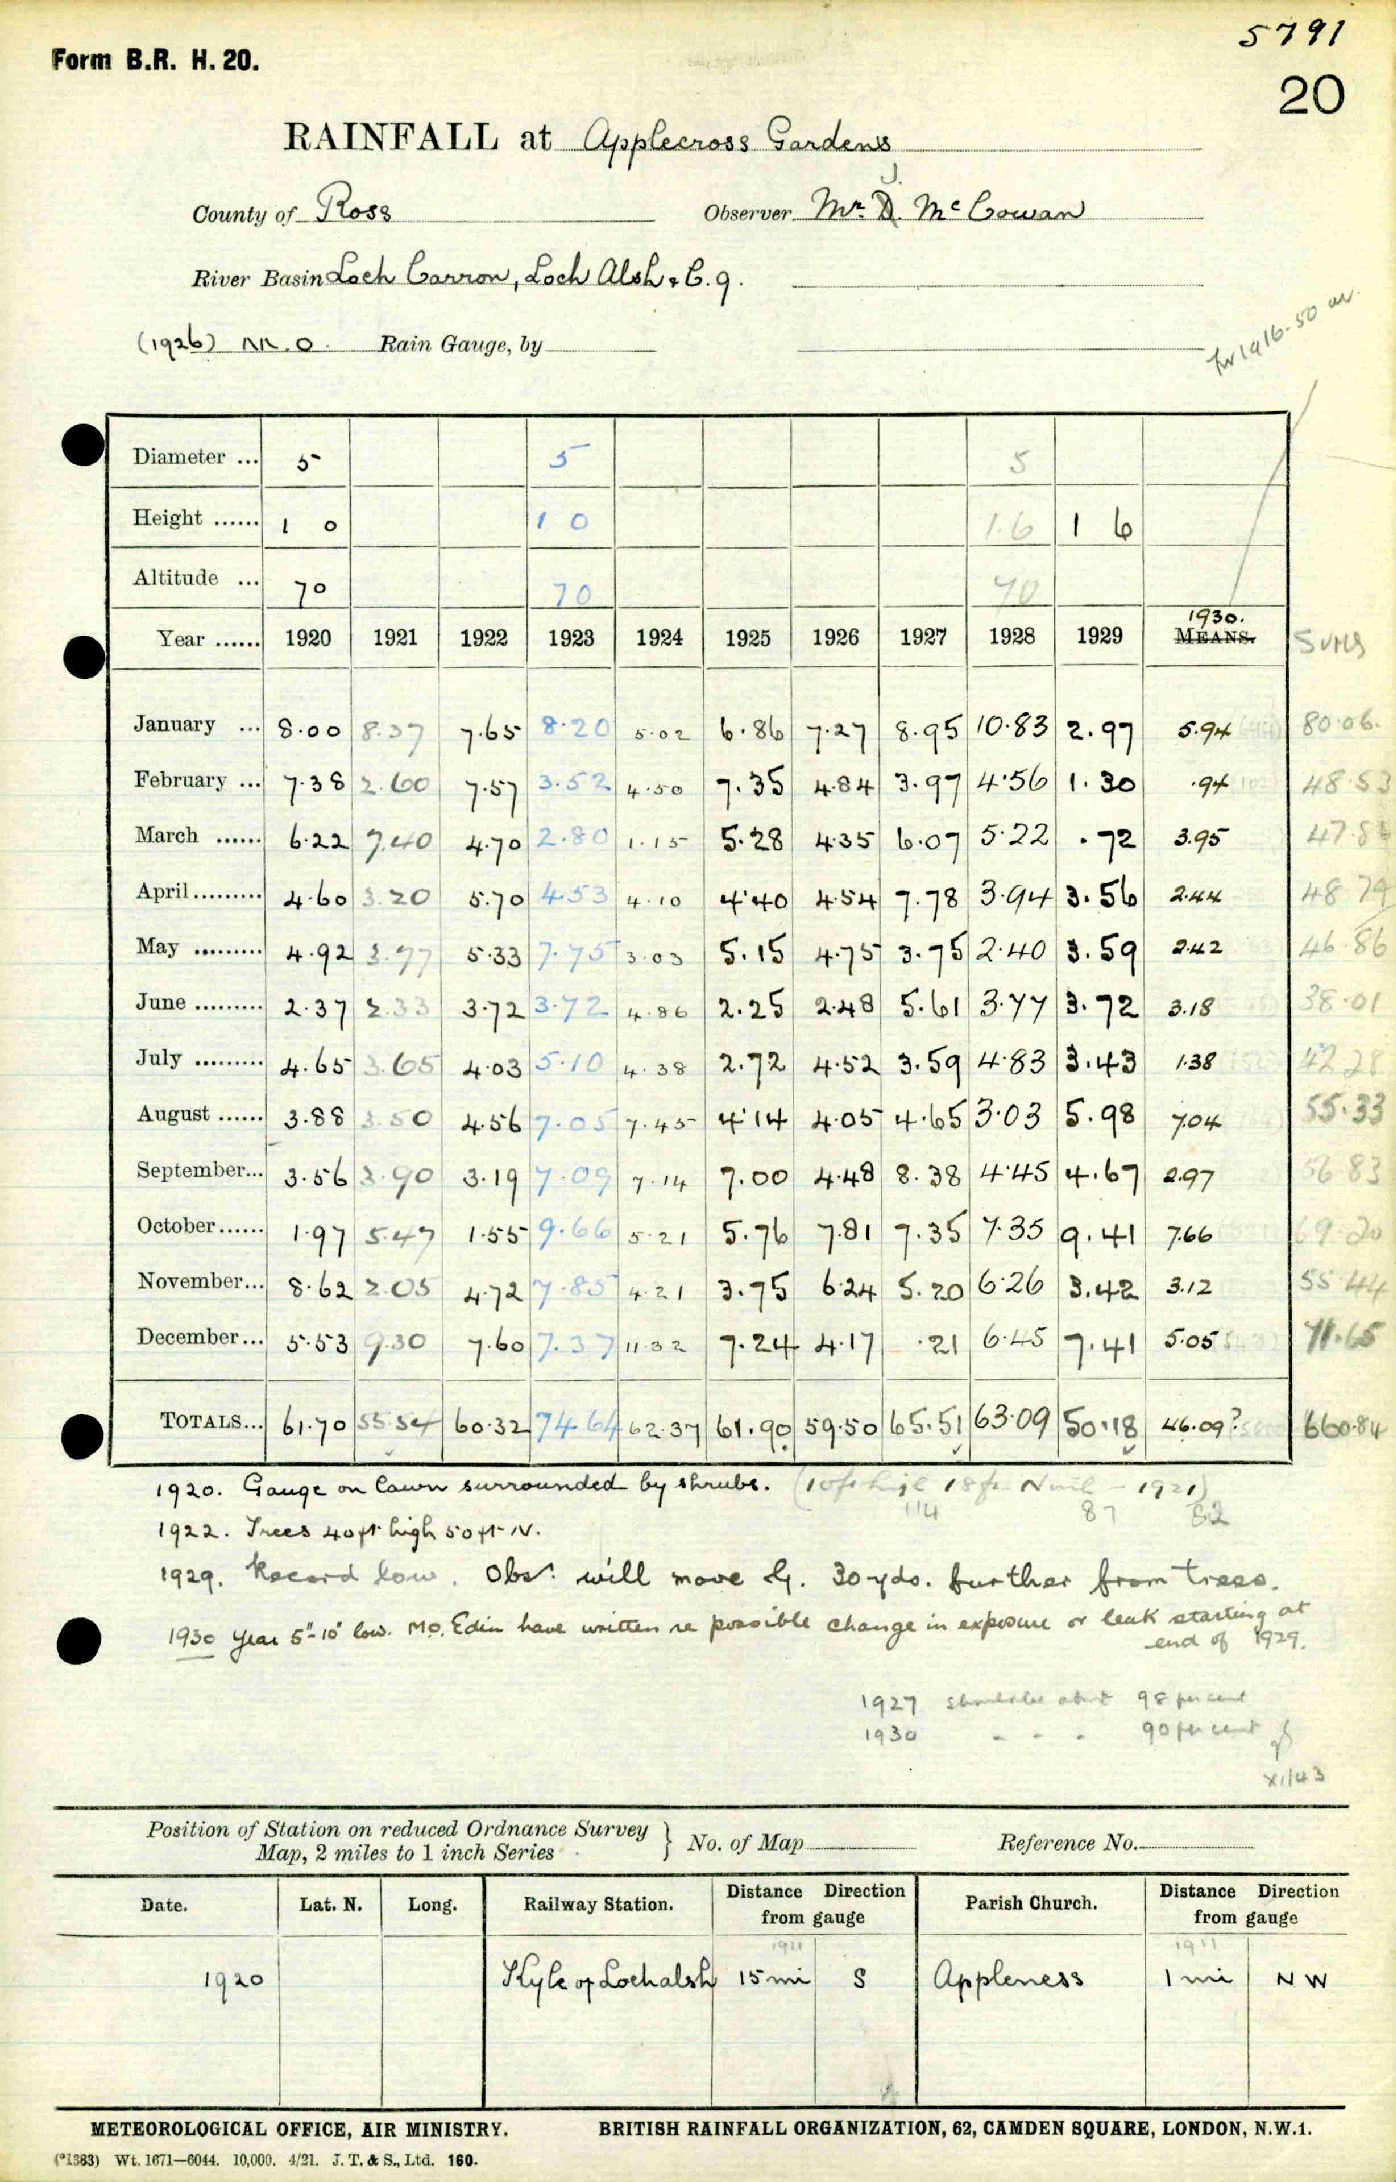 5791
Form B.R. H. 20.
20
RAINFALL at Applecross Gardens
J.
County of Ross Observer Mr. D. McCowan
River Basin Loch Carron, Loch Alsh & C. 9.
(1926) M.O. Rain Gauge, by
for 1916-50 av.
Diameter ... 5 5 5
Height ...... 1 0 1 0 1.6 1 6
Altitude ... 70 70 70
1930.
Year ...... 1920 1921 1922 1923 1924 1925 1926 1927 1928 1929 MEANS. Sums
January ... 8.00 8.37 7.65 8.20 5.02 6.86 7.27 8.95 10.83 2.97 5.94 80.06
February ... 7.38 2.60 7.57 3.52 4.50 7.35 4.84 3.97 4.56 1.30 .94 48.53
March ...... 6.22 7.40 4.70 2.80 1.15 5.28 4.35 6.07 5.22 .72 3.95 47.8
April ......... 4.60 3.20 5.70 4.53 4.10 4.40 4.54 7.78 3.94 3.56 2.44 48.79
May ......... 4.92 3.97 5.33 7.75 3.03 5.15 4.75 3.75 2.40 3.59 2.42 46.86
June ......... 2.37 2.33 3.72 3.72 4.86 2.25 2.48 5.61 3.77 3.72 3.18 38.01
July ......... 4.65 3.65 4.03 5.10 4.38 2.72 4.52 3.59 4.83 3.43 1.38 42.28
August ...... 3.88 3.50 4.56 7.05 7.45 4.14 4.05 4.65 3.03 5.98 7.04 55.33
September... 3.56 3.90 3.19 7.09 7.14 7.00 4.48 8.38 4.45 4.67 2.97 56.83
October ...... 1.97 5.47 1.55 9.66 5.21 5.76 7.81 7.35 7.35 9.41 7.66 69.20
November... 8.62 2.05 4.72 7.85 4.21 3.75 6.24 5.20 6.26 3.42 3.12 55.44
December... 5.53 9.30 7.60 7.37 11.32 7.24 4.17 .21 6.45 7.41 5.05 71.65
TOTALS... 61.70 55.54 60.32 74.64 62.37 61.90 59.50 65.51 63.09 50.18 46.09? 660.84
1920. Gauge on lawn surrounded by shrubs. (10ft high 18ft N until - 1921)
114 87 82
1922. Trees 40ft high 50ft N.
1929. Record low. Obsr. will move G. 30 yds. further from trees.
1930 Year 5"-10" low. M.O. Edin have written re possible change in exposure or leak starting at
end of 1929.
1927 should be about 98 per cent
1930 - - - 90 per cent
XI/43
Position of Station on reduced Ordnance Survey
Map, 2 miles to 1 inch Series } No. of Map Reference No.
Date. Lat. N. Long. Railway Station. Distance Direction from gauge Parish Church. Distance Direction from gauge
1911 1911
1920 Kyle of Lochalsh 15 mi S Appleness 1 mi NW
METEOROLOGICAL OFFICE, AIR MINISTRY. BRITISH RAINFALL ORGANIZATION, 62, CAMDEN SQUARE, LONDON, N.W.1.
(*1383) Wt. 1671—6044. 10,000. 4/21. J. T. & S., Ltd. 160.